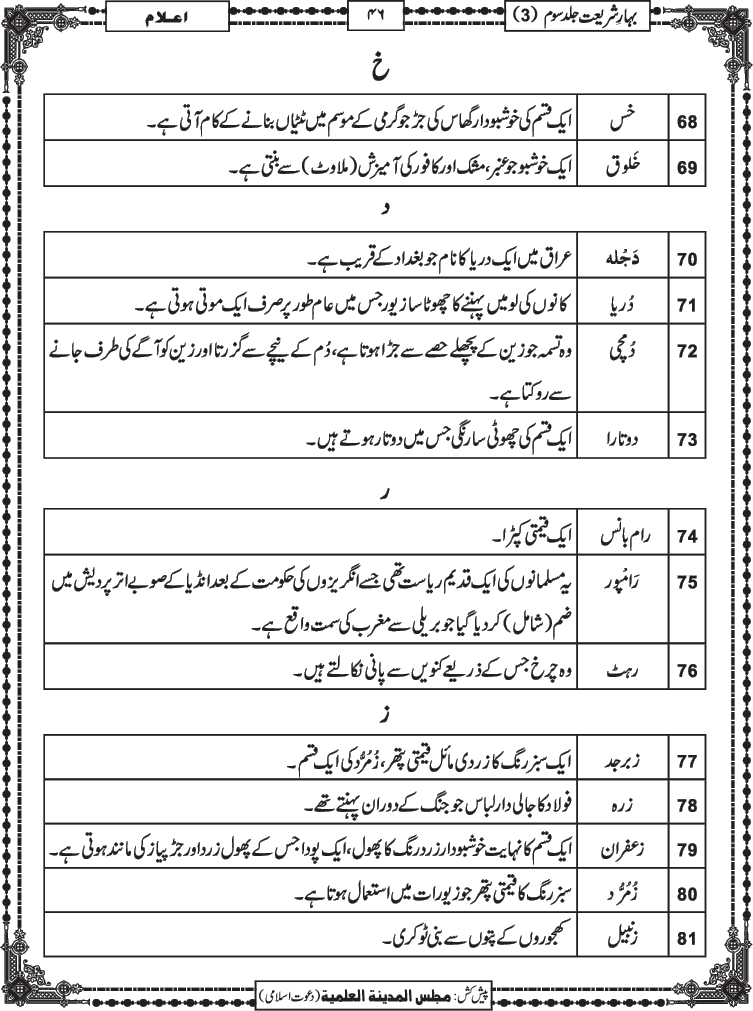 بہارِشریعت جلد سوم (3)
۴۶
اعلام
خ
68 خَس ایک قسم کی خوشبودار گھاس کی جڑ جو گرمی کے موسم میں ٹٹیاں بنانے کے کام آتی ہے۔
69 خَلوق ایک خوشبو جو عنبر، مشک اور کافور کی آمیزش (ملاوٹ) سے بنتی ہے۔
د
70 دَجْلہ عراق میں ایک دریا کا نام جو بغداد کے قریب ہے۔
71 دُریا کانوں کی لو میں پہننے کا چھوٹا سا زیور جس میں عام طور پر صرف ایک موتی ہوتی ہے۔
72 دُمچی وہ تسمہ جو زین کے پچھلے حصے سے جڑا ہوتا ہے، دُم کے نیچے سے گزرتا اور زین کو آگے کی طرف جانے
سے روکتا ہے۔
73 دوتارا ایک قسم کی چھوٹی سارنگی جس میں دو تار ہوتے ہیں۔
ر
74 رام بانس ایک قیمتی کپڑا۔
75 رَامْپور یہ مسلمانوں کی ایک قدیم ریاست تھی جسے انگریزوں کی حکومت کے بعد انڈیا کے صوبے اتر پردیش میں
ضم (شامل) کر دیا گیا جو بریلی سے مغرب کی سمت واقع ہے۔
76 رہٹ وہ چرخ جس کے ذریعے کنویں سے پانی نکالتے ہیں۔
ز
77 زبرجد ایک سبز رنگ کا زردی مائل قیمتی پتھر، زُمُرُّد کی ایک قسم۔
78 زرہ فولاد کا جالی دار لباس جو جنگ کے دوران پہنتے تھے۔
79 زعفران ایک قسم کا نہایت خوشبودار زرد رنگ کا پھول، ایک پودا جس کے پھول زرد اور جڑ پیاز کی مانند ہوتی ہے۔
80 زُمُرُّد سبز رنگ کا قیمتی پتھر جو زیورات میں استعمال ہوتا ہے۔
81 زنبیل کھجوروں کے پتوں سے بنی ٹوکری۔
پیش کش: مجلس المدینۃ العلمیۃ (دعوت اسلامی)